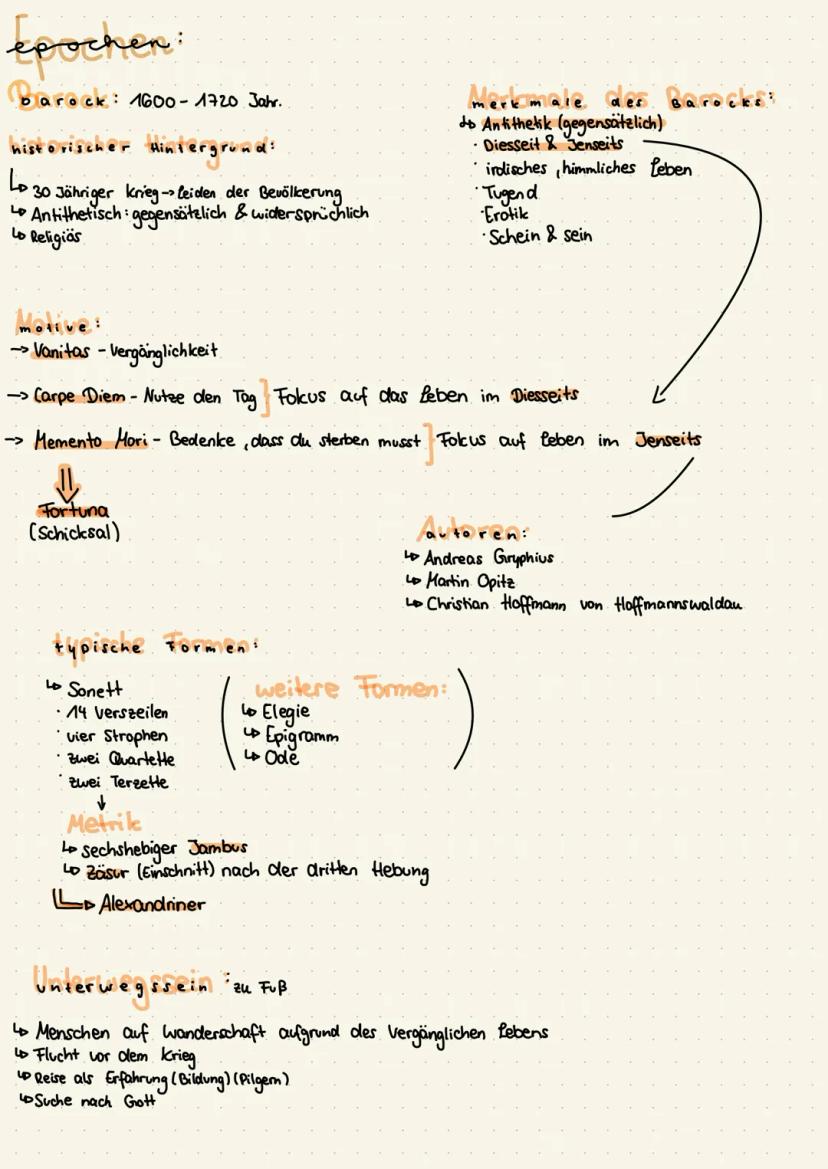 Epochen:
Barock: 1600-1720 Jahr.
historischer Hintergrund:
↳ 30 Jähriger Krieg → leiden der Bevölkerung
↳ Antithetisch: gegensätzlich & widersprüchlich
↳ Religiös
Merkmale des Barocks:
↳ Antithetik (gegensätzlich)
· Diesseit & Jenseits
· irdisches, himmliches Leben
· Tugend
· Erotik
· Schein & sein
Motive:
→ Vanitas - Vergänglichkeit
→ Carpe Diem - Nutze den Tag } Fokus auf das Leben im Diesseits
→ Memento Mori - Bedenke, dass du sterben musst } Fokus auf Leben im Jenseits
⇓
Fortuna
(Schicksal)
Autoren:
↳ Andreas Gryphius
↳ Martin Opitz
↳ Christian Hoffmann von Hoffmannswaldau
typische Formen:
↳ Sonett
· 14 Verszeilen
· vier Strophen
· zwei Quartette
· zwei Terzette
weitere Formen:
↳ Elegie
↳ Epigramm
↳ Ode
↓
Metrik
↳ sechshebiger Jambus
↳ Zäsur (Einschnitt) nach der dritten Hebung
↳ Alexandriner
Unterwegssein: zu Fuß
↳ Menschen auf Wanderschaft aufgrund des Vergänglichen Lebens
↳ Flucht vor dem Krieg
↳ Reise als Erfahrung (Bildung) (Pilgern)
↳ Suche nach Gott